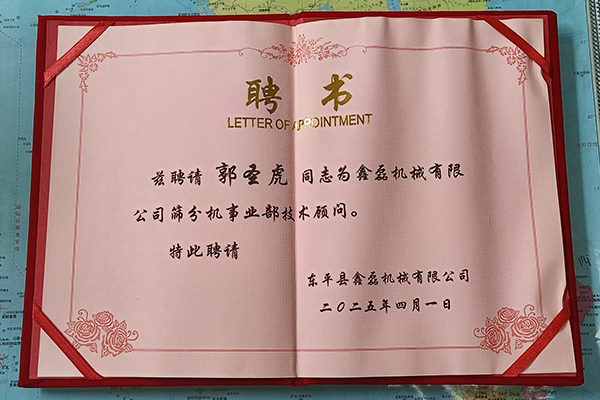 聘书
LETTER OF APPOINTMENT
兹聘请 郭圣虎 同志为鑫磊机械有限
公司筛分机事业部技术顾问。
特此聘请
东平县鑫磊机械有限公司
二〇二五年四月一日